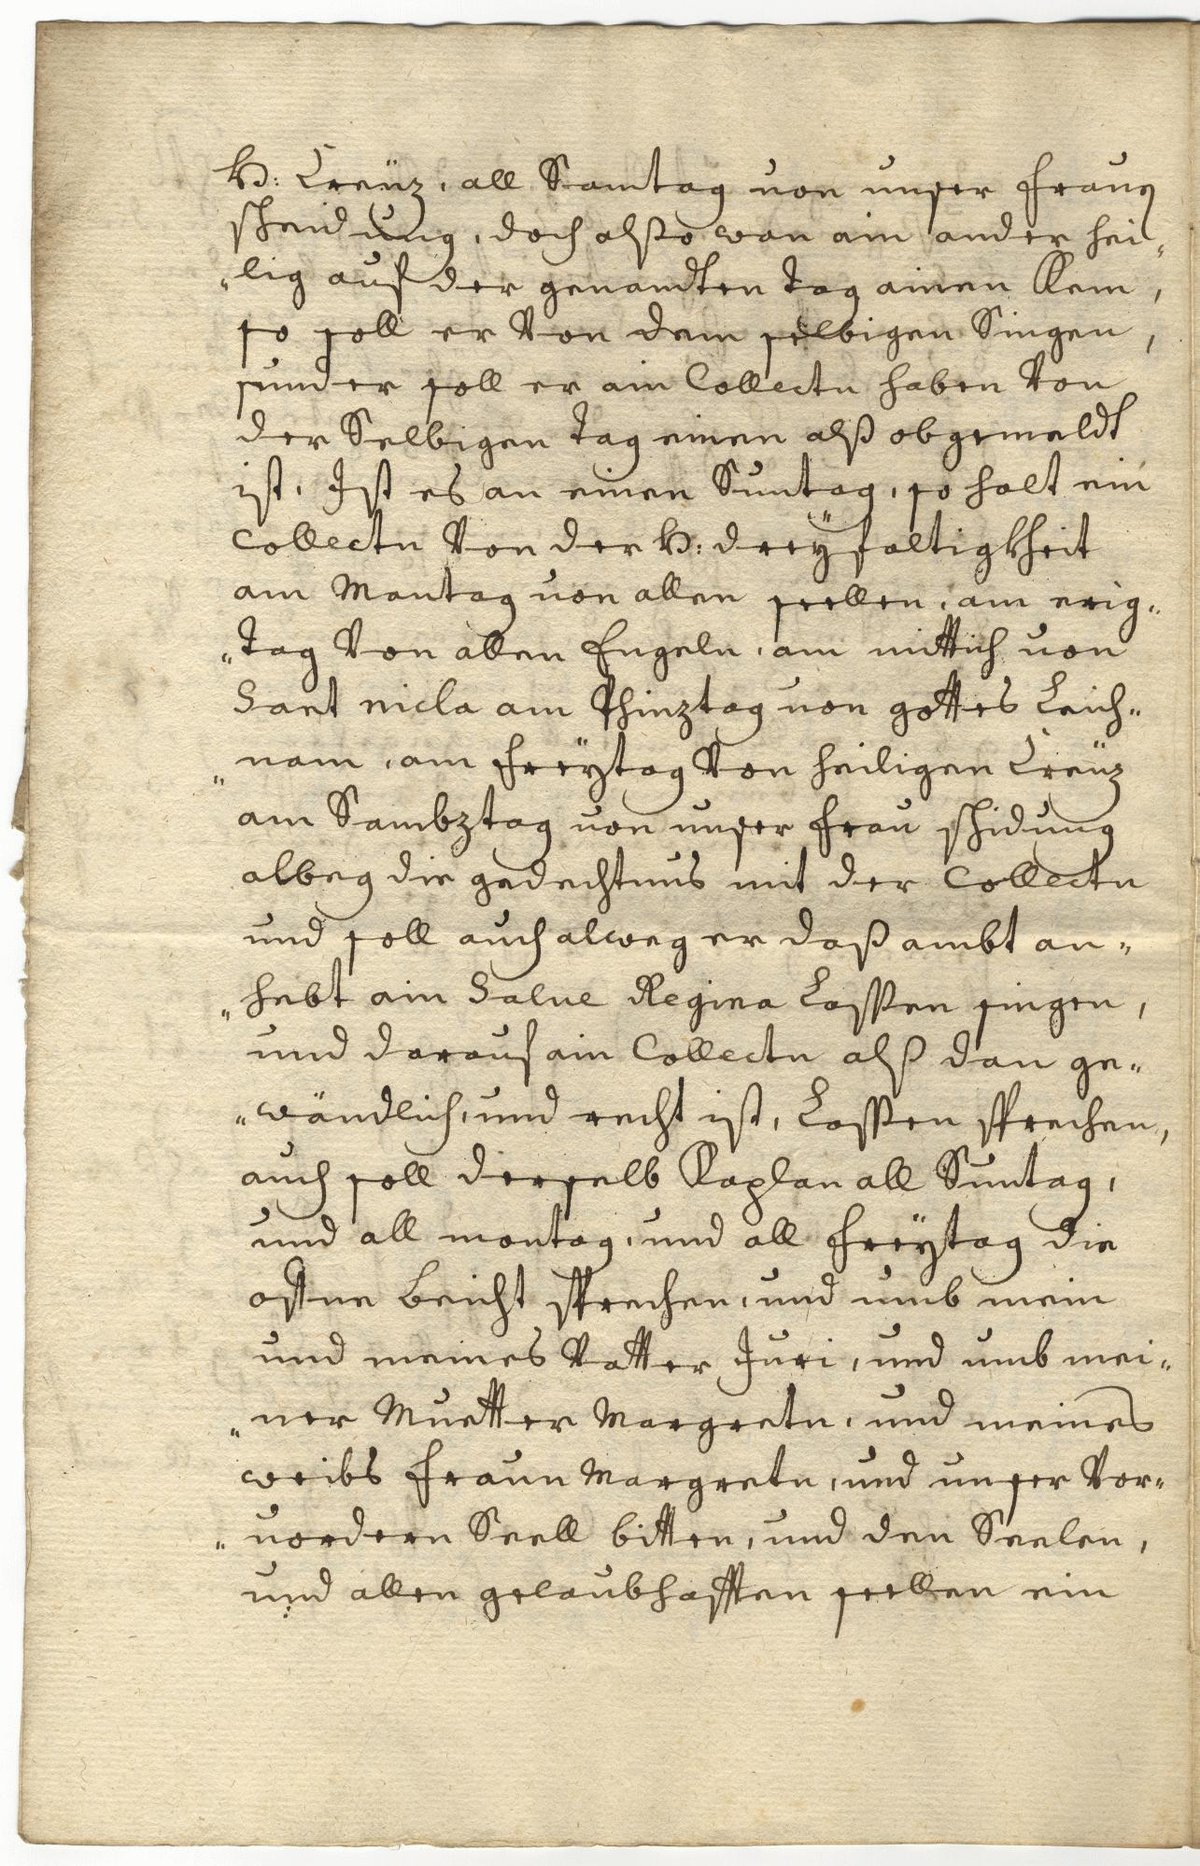 H: Creüz, all Samtag von unser Frauen
scheidung, doch alßo wan ain ander hei„
„lig auf der genandten tag ainen Kem,
so soll er Von dem selbigen Singen,
sunder soll er ain Collectn haben Von
der Selbigen tag einen alß obgemeldt
ist. Ist es an einen Suntag, so halt ein
Collectn Von der H: dreÿfaltigkheit
am Montag von allen seellen, am erig„
„tag Von allen Engeln, am mittich von
Sant nicla am Phinztag von gottes Leich„
„nam, am Freÿtag Von heiligen Creüz
am Sambztag von unser Frau schidung
albeg die gedechtnus mit der Collectn
und soll auch alweg er daß ambt an„
„hebt ain Salve Regina Lassen singen,
und darauf ain Collectn alß dan ge„
„wändlich, und recht ist, Lassen sprechen,
auch soll derselb Kaplan all Suntag,
und all montag, und all Freÿtag die
offne beicht sprechen, und umb mein
und meines Vatter Juri, und umb mei„
„ner Muetter Margretn, und meines
weibs Fraun Margretn, und unser Vor„
„vordern Seell bitten, und den Seelen,
und allen gelaubhafften seellen ein